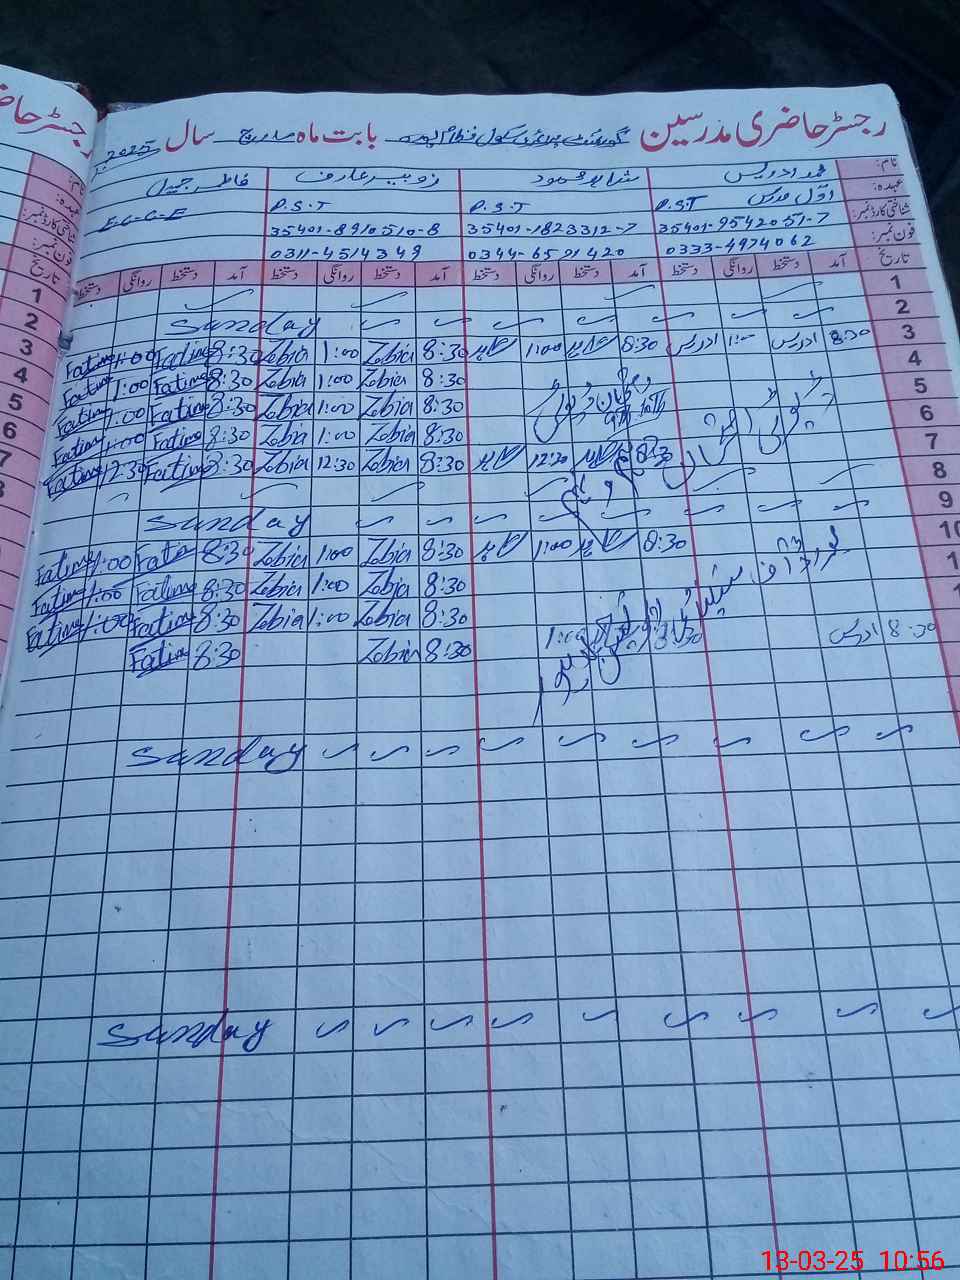 رجسٹر حاضری مدرسین گورنمنٹ پرائمری سکول بابت ماہ مارچ سال 2025
نام: محمد ادریس شاہد محمود زوبیہ عارف فاطمہ جمیل
عہدہ: اوّل مدرس P.S.T P.S.T P.S.T E-C-C-E
شناختی کارڈ نمبر: 35401-9542051-7 35401-1823312-7 35401-8910510-8
فون نمبر: 0333-4974062 0344-6591420 0311-4514349
تاریخ آمد دستخط روانگی دستخط آمد دستخط روانگی دستخط آمد دستخط روانگی دستخط آمد دستخط روانگی دستخط
1
2 Sunday
3 8:30 ادریس 1:00 ادریس 8:30 1:00 8:30 Zobia 1:00 Zobia 8:30 Fatima 1:00 Fatima
4 8:30 Zobia 1:00 Zobia 8:30 Fatima 1:00 Fatima
5 8:30 Zobia 1:00 Zobia 8:30 Fatima 1:00 Fatima
6 8:30 Zobia 1:00 Zobia 8:30 Fatima 1:00 Fatima
7 8:30 12:30 8:30 Zobia 12:30 Zobia 8:30 Fatima 12:30 Fatima
8
9 Sunday
10 8:30 1:00 8:30 Zobia 1:00 Zobia 8:30 Fatima 1:00 Fatima
8:30 Zobia 1:00 Zobia 8:30 Fatima 1:00 Fatima
8:30 Zobia 1:00 Zobia 8:30 Fatima 1:00 Fatima
8:30 ادریس 8:30 1:00 8:30 Zobia 8:30 Fatima
Sunday
Sunday
13-03-25 10:56